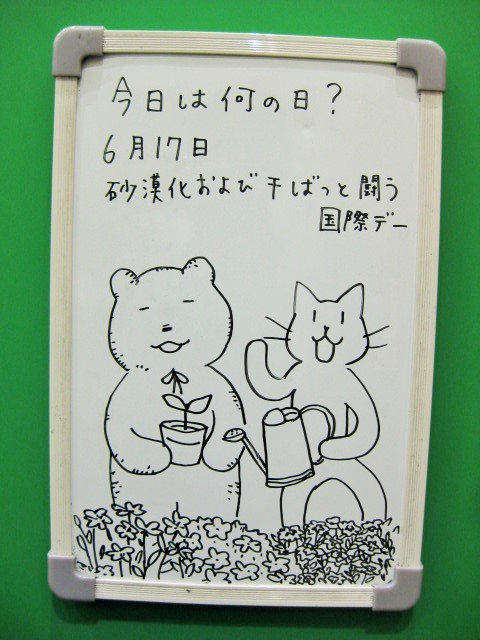 今日は何の日？
6月17日
砂漠化および干ばっと闘う
国際デー